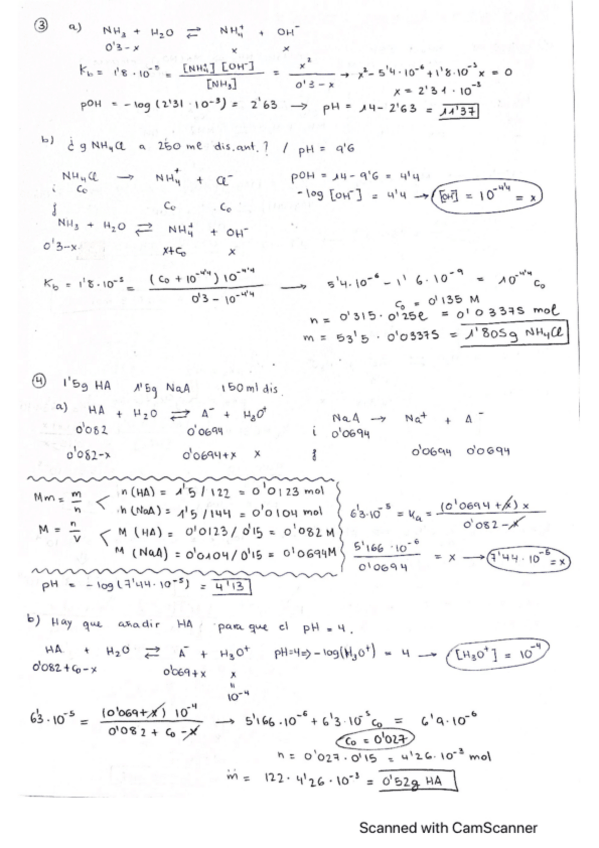 ③ a) NH₃ + H₂O ⇌ NH₄⁺ + OH⁻
0'3-x x x
K_b = 1'8·10⁻⁵ = [NH₄⁺] [OH⁻] / [NH₃] = x² / 0'3-x → x² - 5'4·10⁻⁶ + 1'8·10⁻⁵x = 0
x = 2'31·10⁻³
pOH = -log (2'31·10⁻³) = 2'63 → pH = 14 - 2'63 = 11'37
b) ¿g NH₄Cl a 250 ml dis. ant.? / pH = 9'6
NH₄Cl → NH₄⁺ + Cl⁻ pOH = 14 - 9'6 = 4'4
i C₀ -log [OH⁻] = 4'4 → [OH⁻] = 10⁻⁴'⁴ = x
f C₀ C₀
NH₃ + H₂O ⇌ NH₄⁺ + OH⁻
0'3-x x+C₀ x
K_b = 1'8·10⁻⁵ = (C₀ + 10⁻⁴'⁴) 10⁻⁴'⁴ / 0'3 - 10⁻⁴'⁴ → 5'4·10⁻⁶ - 1'6·10⁻⁹ = 10⁻⁴'⁴ C₀
C₀ = 0'135 M
n = 0'315 · 0'25l = 0'03375 mol
m = 53'5 · 0'03375 = 1'805g NH₄Cl
④ 1'5g HA 1'5g NaA 150 ml dis.
a) HA + H₂O ⇌ A⁻ + H₃O⁺ NaA → Na⁺ + A⁻
0'082 0'0694 i 0'0694
0'082-x 0'0694+x x f 0'0694 0'0694
Mm = m/n < n (HA) = 1'5 / 122 = 0'0123 mol
n (NaA) = 1'5 / 144 = 0'0104 mol
M = n/V < M (HA) = 0'0123 / 0'15 = 0'082 M
M (NaA) = 0'0104 / 0'15 = 0'0694 M
6'3·10⁻⁵ = Ka = (0'0694 + x) x / 0'082 - x
5'166·10⁻⁶ / 0'0694 = x → 7'44·10⁻⁵ = x
pH = -log (7'44·10⁻⁵) = 4'13
b) Hay que añadir HA para que el pH = 4.
HA + H₂O ⇌ A⁻ + H₃O⁺ pH=4 => -log(H₃O⁺) = 4 → [H₃O⁺] = 10⁻⁴
0'082+C₀-x 0'069+x x
"
10⁻⁴
6'3·10⁻⁵ = (0'069+x) 10⁻⁴ / 0'082 + C₀ - x → 5'166·10⁻⁶ + 6'3·10⁻⁵ C₀ = 6'9·10⁻⁶
C₀ = 0'027
n = 0'027 · 0'15 = 4'26·10⁻³ mol
m = 122 · 4'26·10⁻³ = 0'52g HA
Scanned with CamScanner